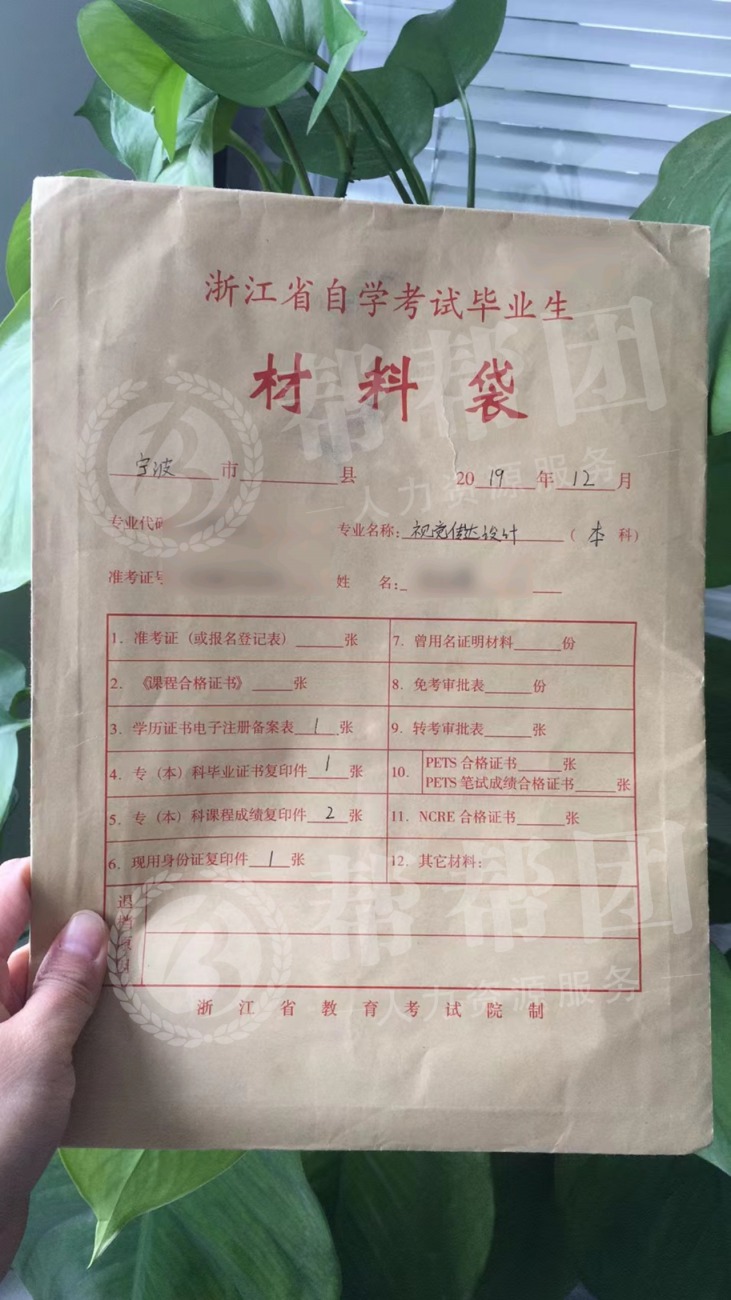 浙江省自学考试毕业生
材料袋
宁波市 县 2019年12月
专业代码 专业名称:视觉传达设计(本科)
准考证号 姓名:
1. 准考证(或报名登记表) 张
7. 曾用名证明材料 份
2. 《课程合格证书》 张
8. 免考审批表 份
3. 学历证书电子注册备案表 1 张
9. 转考审批表 张
4. 专(本)科毕业证书复印件 1 张
10. PETS 合格证书 张
PETS 笔试成绩合格证书 张
5. 专(本)科课程成绩复印件 2 张
11. NCRE 合格证书 张
6. 现用身份证复印件 1 张
12. 其它材料:
退档
浙江省教育考试院制
帮帮团
人力资源服务
帮帮团
人力资源服务